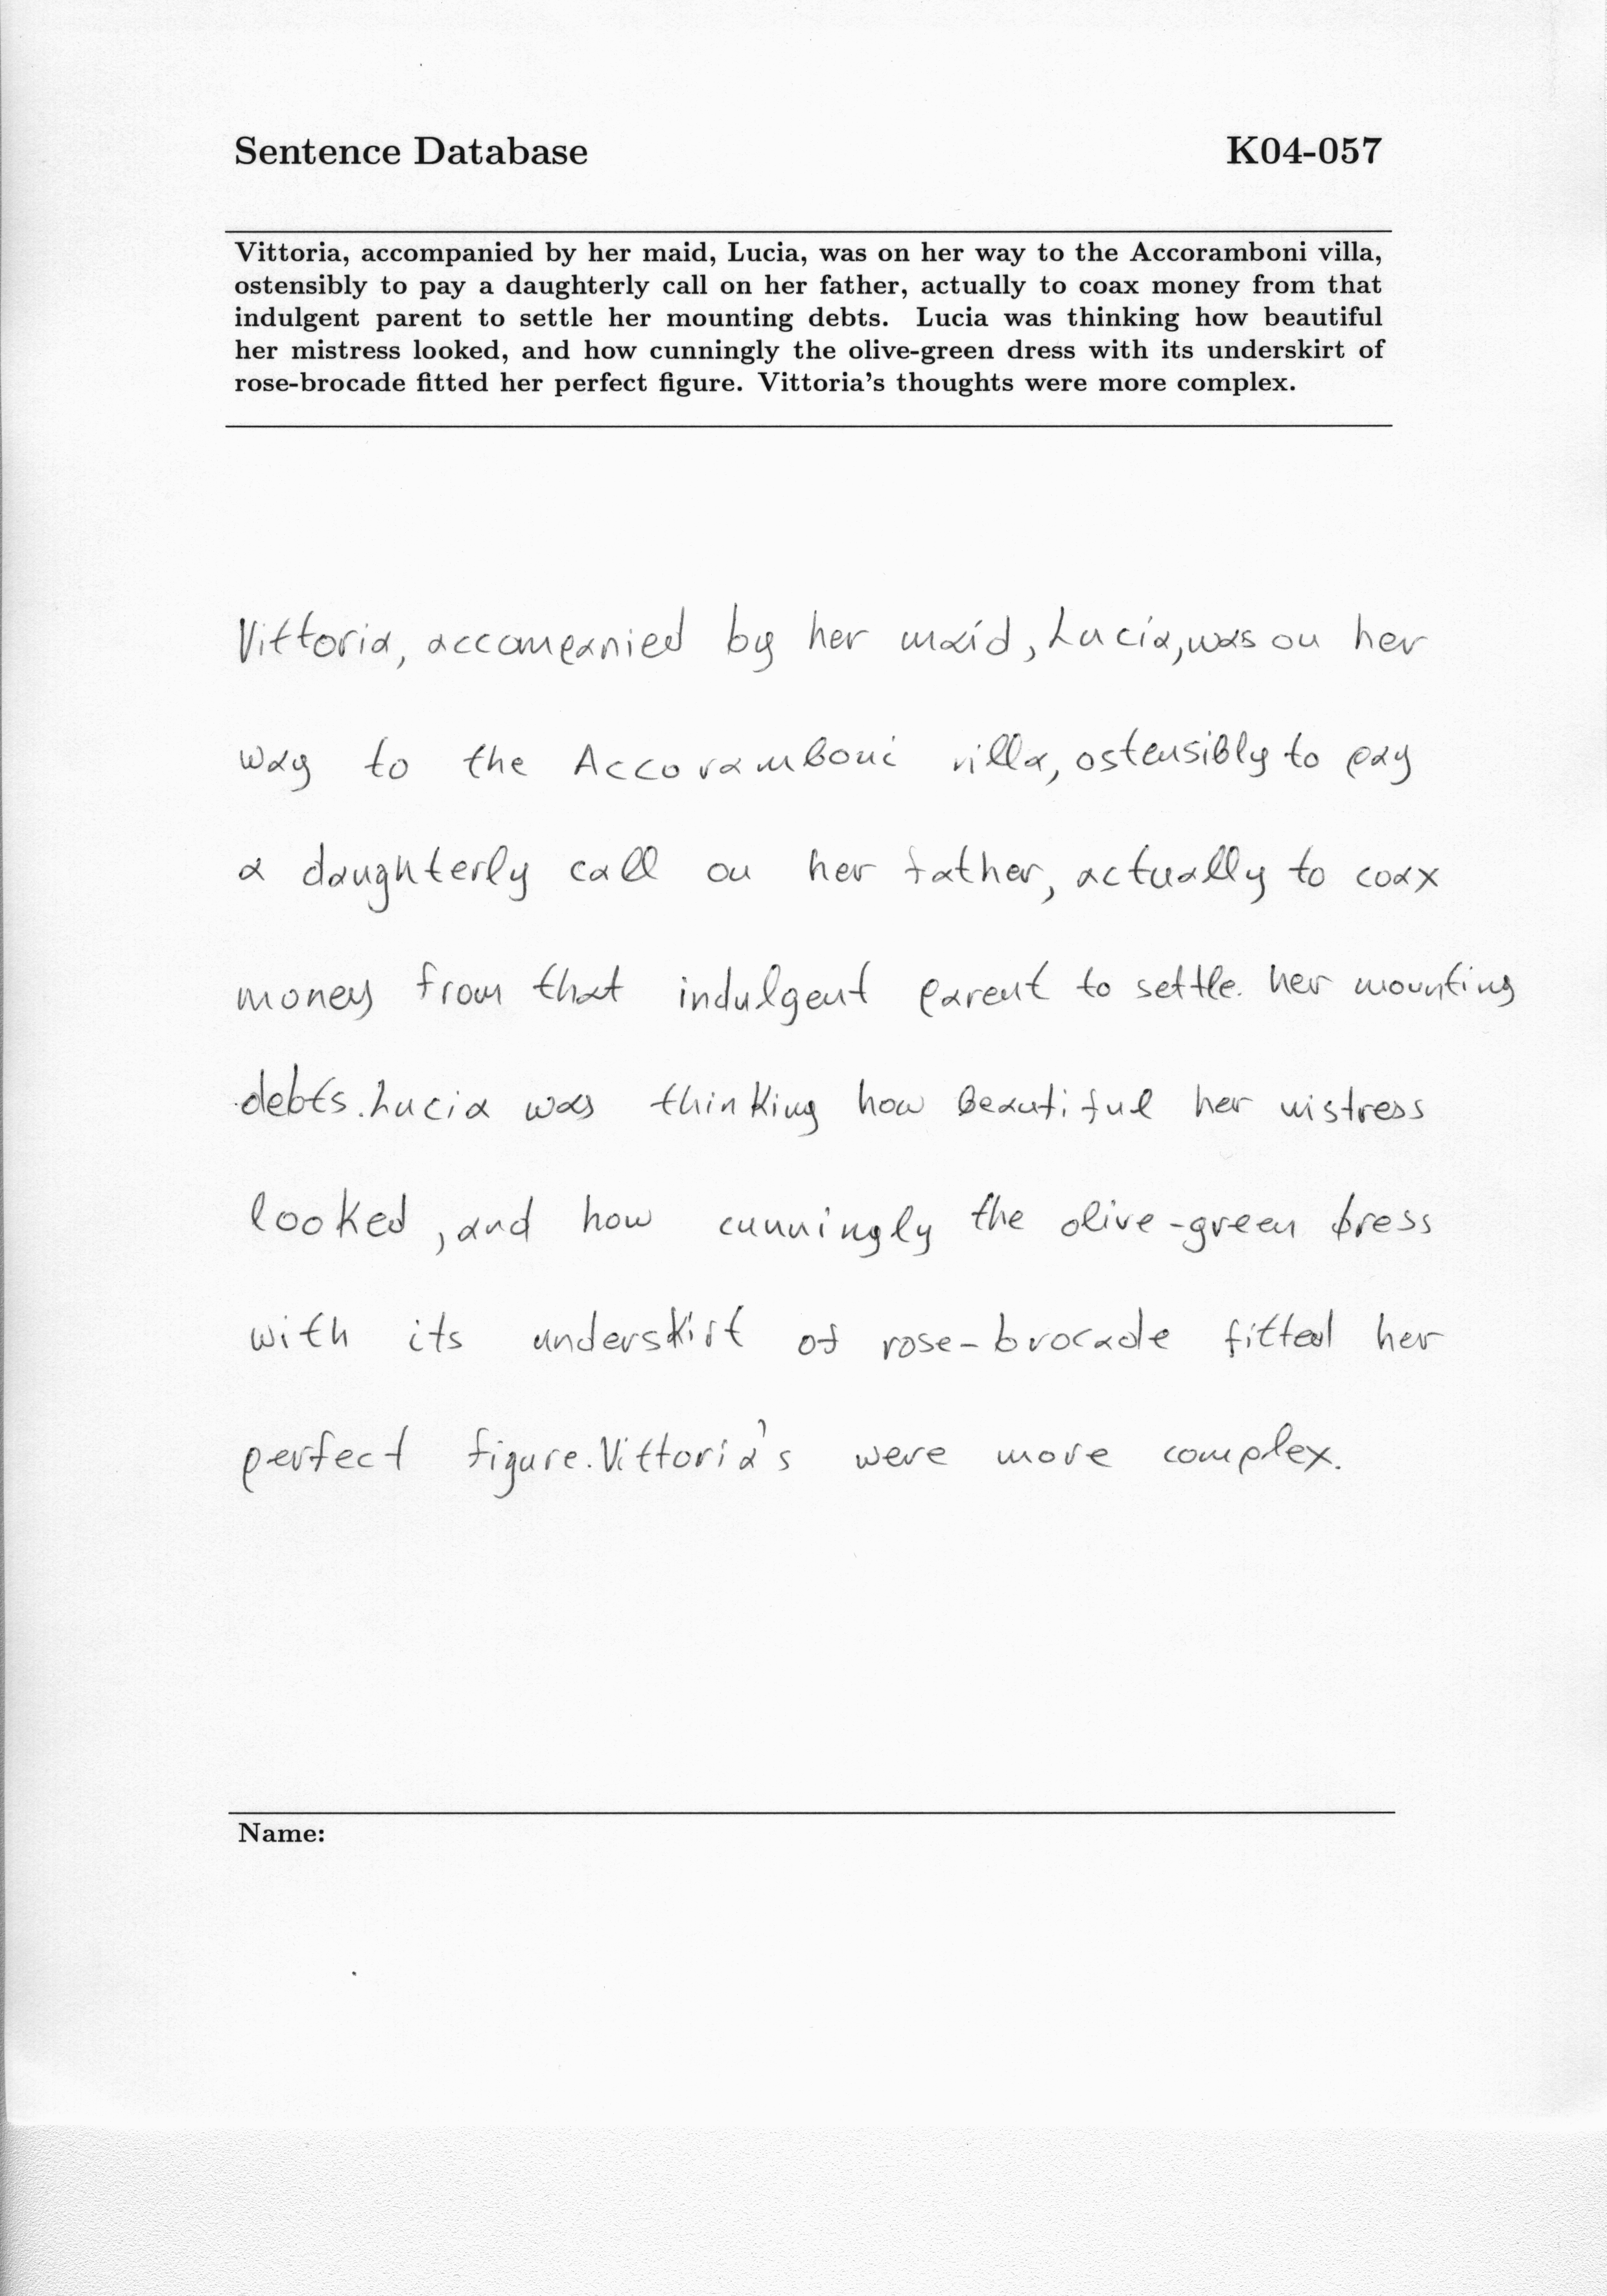 Sentence Database K04-057
Vittoria, accompanied by her maid, Lucia, was on her way to the Accoramboni villa,
ostensibly to pay a daughterly call on her father, actually to coax money from that
indulgent parent to settle her mounting debts. Lucia was thinking how beautiful
her mistress looked, and how cunningly the olive-green dress with its underskirt of
rose-brocade fitted her perfect figure. Vittoria's thoughts were more complex.
Vittoria, accompanied by her maid, Lucia, was on her
way to the Accoramboni villa, ostensibly to pay
a daughterly call on her father, actually to coax
money from that indulgent parent to settle her mounting
debts. Lucia was thinking how beautiful her mistress
looked, and how cunningly the olive-green dress
with its underskirt of rose-brocade fitted her
perfect figure. Vittoria's were more complex.
Name: